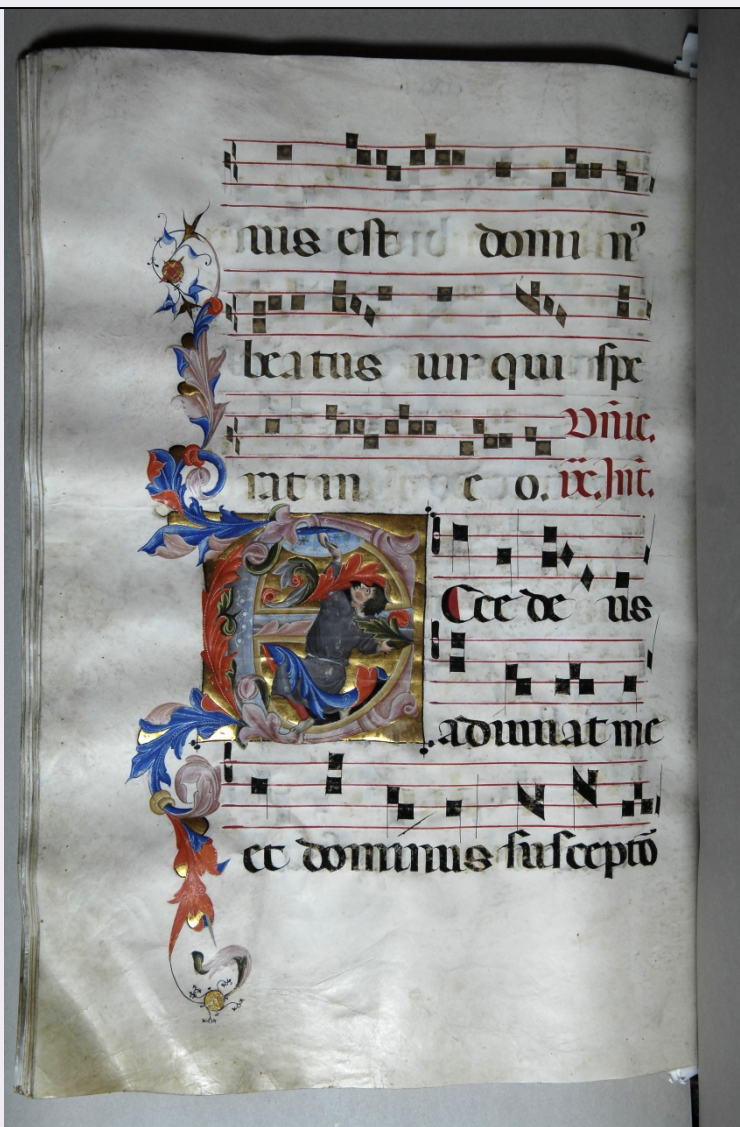 uis est domin⁹
beatus uir qui spe
rat in e o. Dn̄ic. ix. Int.
Ecce de us
adiuuat me
et dominus susceptō